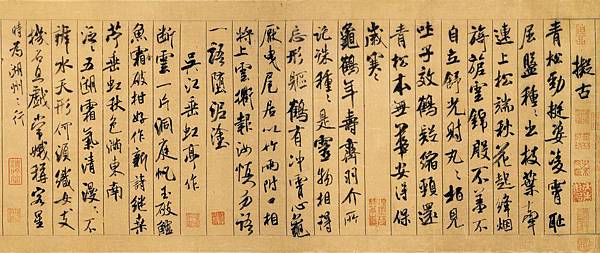 擬古
青松勁挺姿凌霄恥
屈盤種〻出枝葉牽
連上松端秋花起絳烟
旖旎雲錦殷不羞不
自立舒光射丸〻柏見
吐子效鶴疑縮頸還
青松本無華安得保
歲寒
龜鶴年壽齊羽介所
託殊種〻是靈物相得
忘形軀鶴有沖霄心龜
厭曳尾居以竹兩附口相
將上雲衢報汝慎勿語
一語墮泥塗
吳江垂虹亭作
斷雲一片洞庭帆玉破鱸
魚霜破柑好作新詩繼桑
苧垂虹秋色滿東南
泛〻五湖霜氣清漫〻不
辨水天形何須織女支
機石且戲常娥稱客星
時為湖州之行